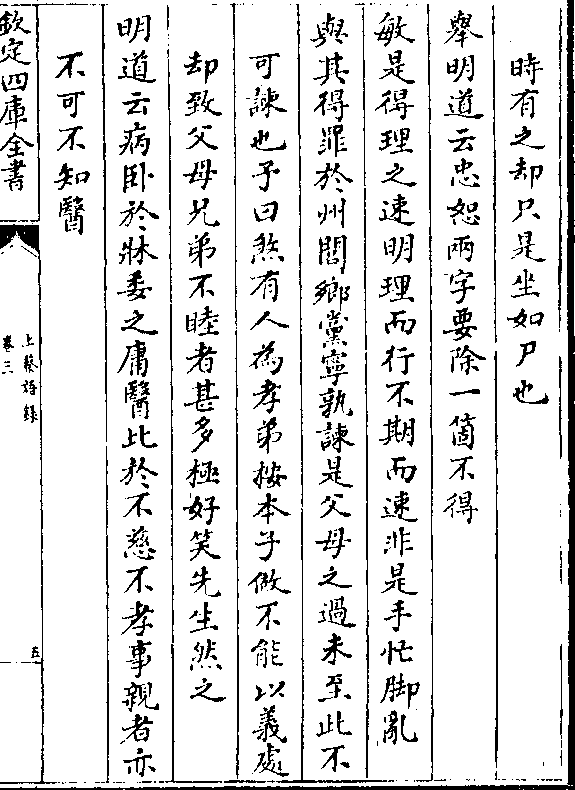 時有之却只是坐如尸也
舉明道云忠恕兩字要除一箇不得
敏是得理之速明理而行不期而速非是手忙脚亂
與其得罪於州閭鄉黨寧孰諫是父母之過未至此不
可諫也予曰煞有人為孝弟按本子做不能以義處
却致父母兄弟不睦者甚多極好笑先生然之
明道云病卧於牀委之庸醫比於不慈不孝事親者亦
不可不知醫
欽定四庫全書
上蔡語錄
卷三
五